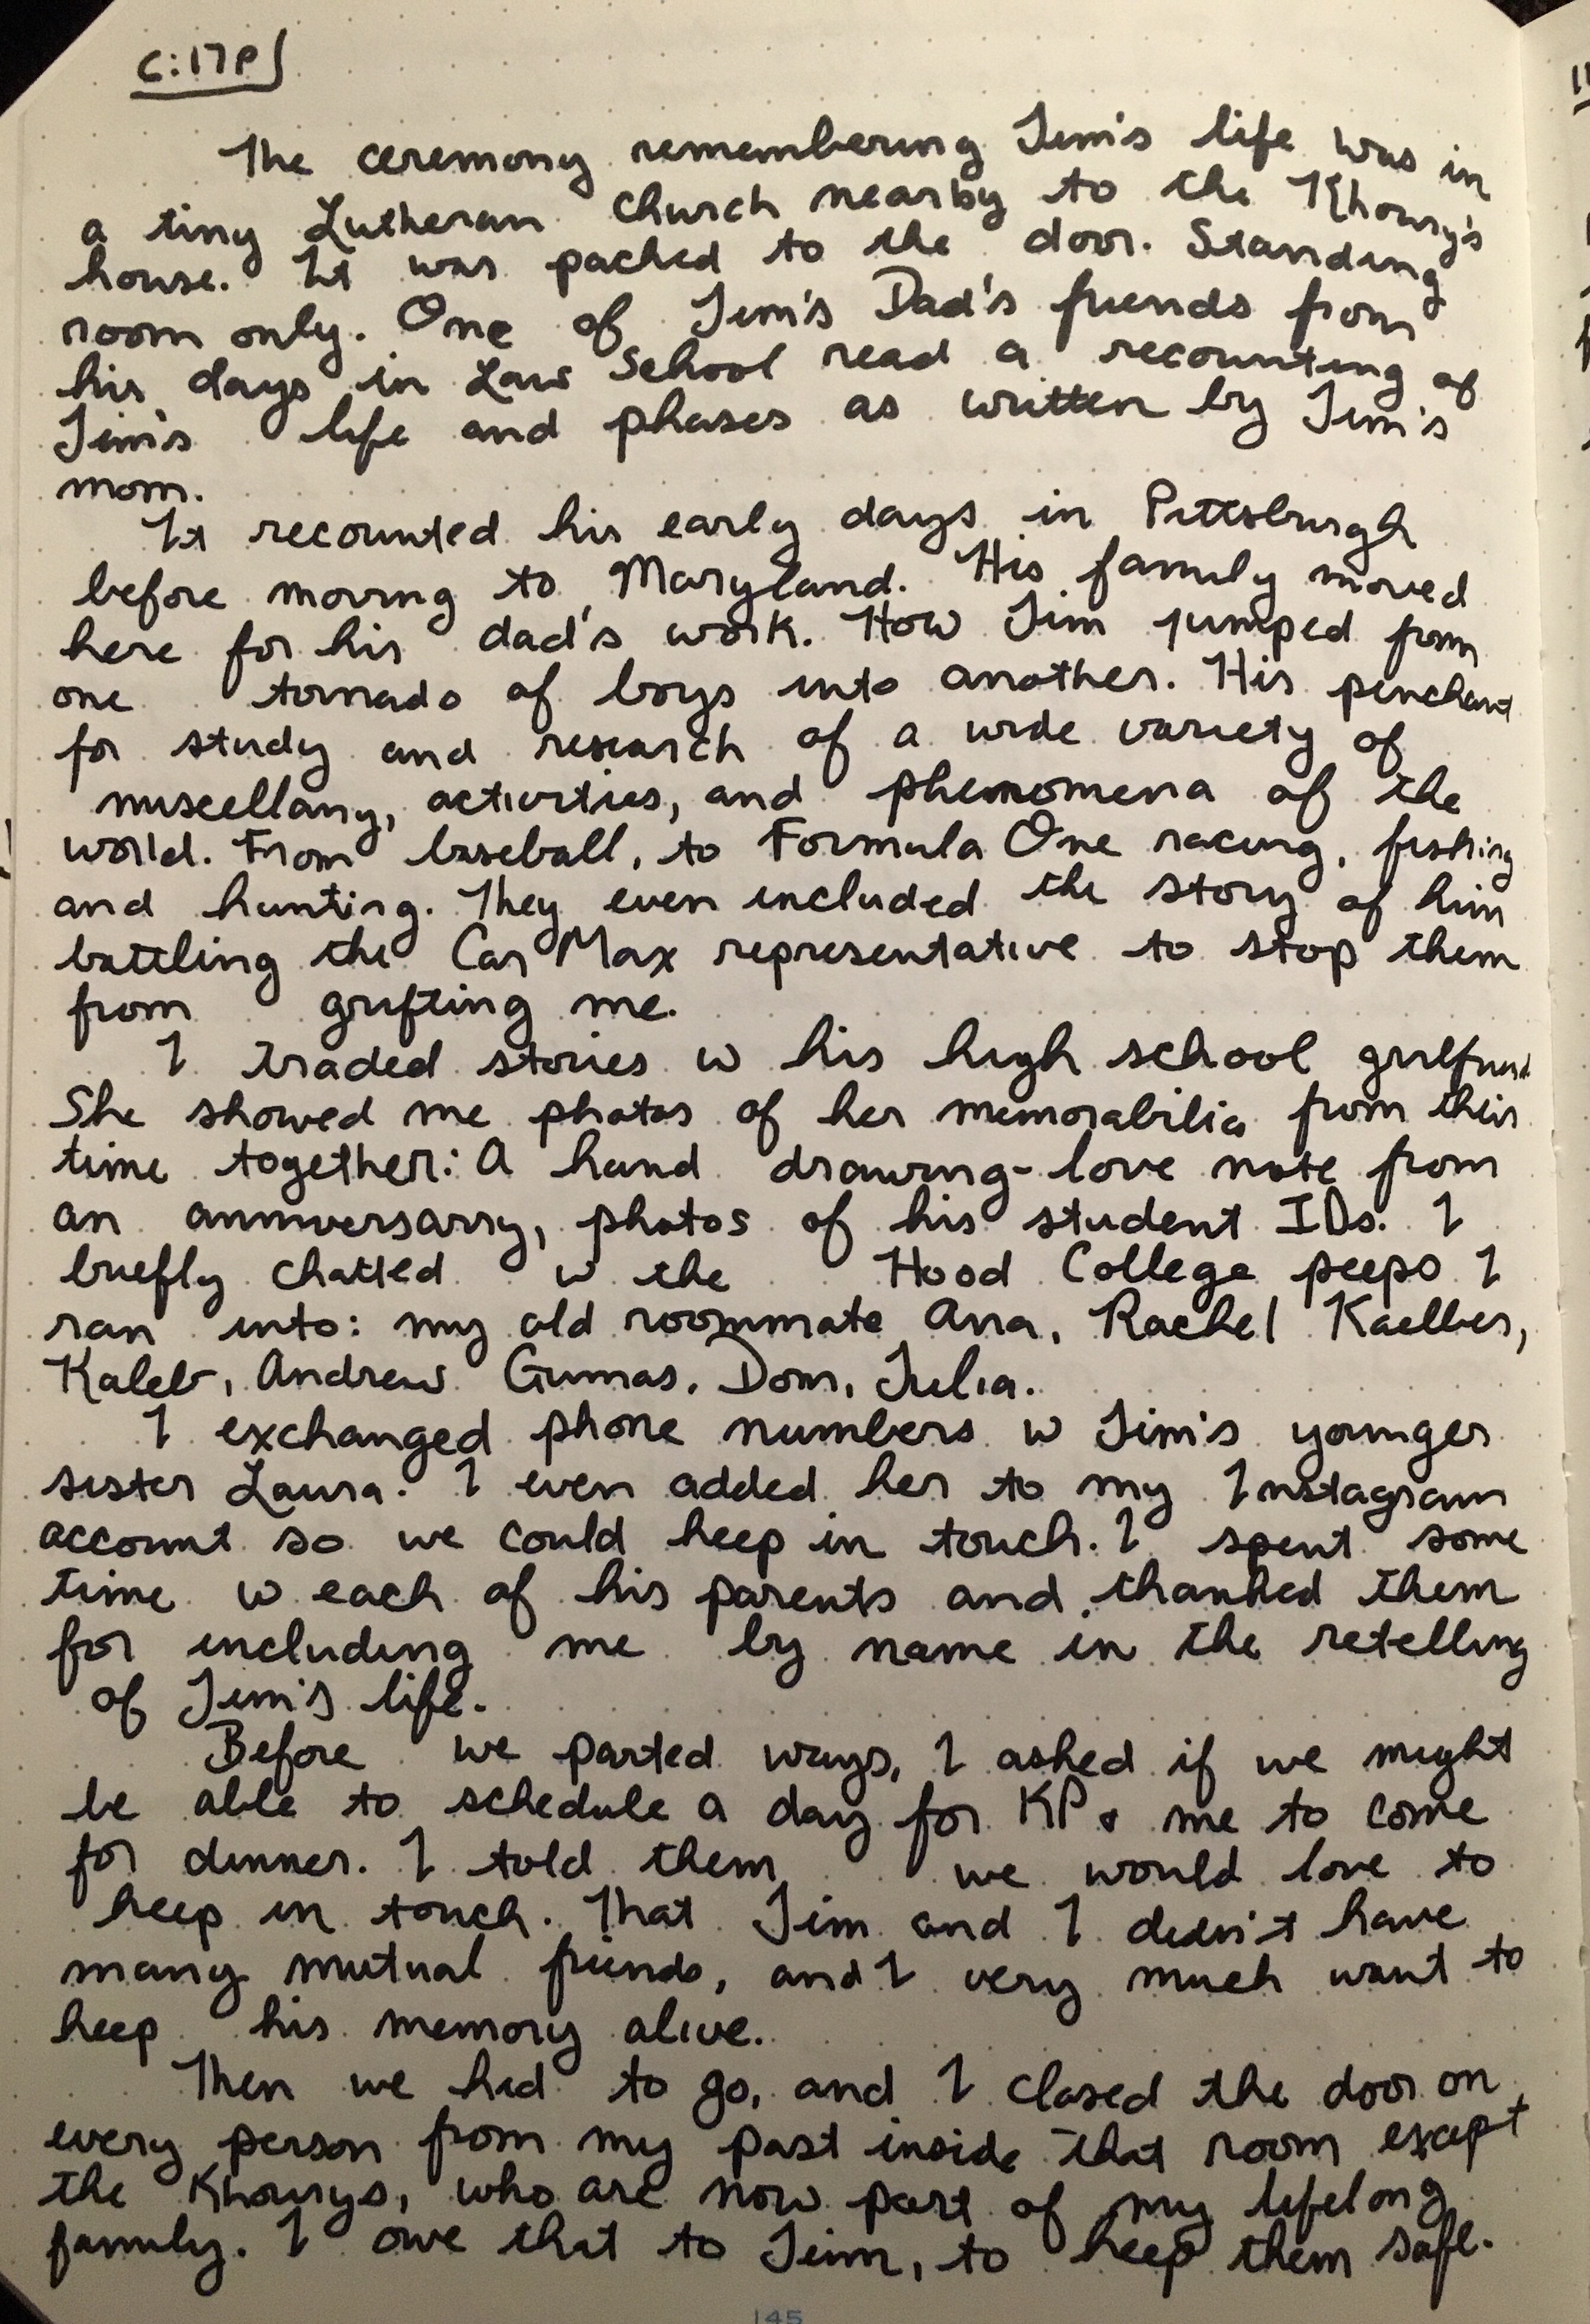 C:17P
The ceremony remembering Jim's life was in
a tiny Lutheran church nearby to the Khoury's
house. It was packed to the door. Standing
room only. One of Jim's Dad's friends from
his days in Law School read a recounting of
Jim's life and phases as written by Jim's
mom.
It recounted his early days in Pittsburgh
before moving to Maryland. His family moved
here for his dad's work. How Jim jumped from
one tornado of boys into another. His penchant
for study and research of a wide variety of
miscellany, activities, and phenomena of the
world. From baseball, to Formula One racing, fishing
and hunting. They even included the story of him
battling the CarMax representative to stop them
from grifting me.
I traded stories w his high school girlfriend
She showed me photos of her memorabilia from their
time together: A hand drawing-love note from
an anniversarry, photos of his student IDs. I
briefly chatted w the Hood College peeps I
ran into: my old roommate Ana, Rachel Kaelber,
Kaleb, Andrew Gumas, Dom, Julia.
I exchanged phone numbers w Jim's younger
sister Laura. I even added her to my Instagram
account so we could keep in touch. I spent some
time w each of his parents and thanked them
for including me by name in the retelling
of Jim's life.
Before we parted ways, I asked if we might
be able to schedule a day for KP & me to come
for dinner. I told them we would love to
keep in touch. That Jim and I didn't have
many mutual friends, and I very much want to
keep his memory alive.
Then we had to go, and I closed the door on
every person from my past inside that room except
the Khourys, who are now part of my lifelong
family. I owe that to Jim, to keep them safe.
145